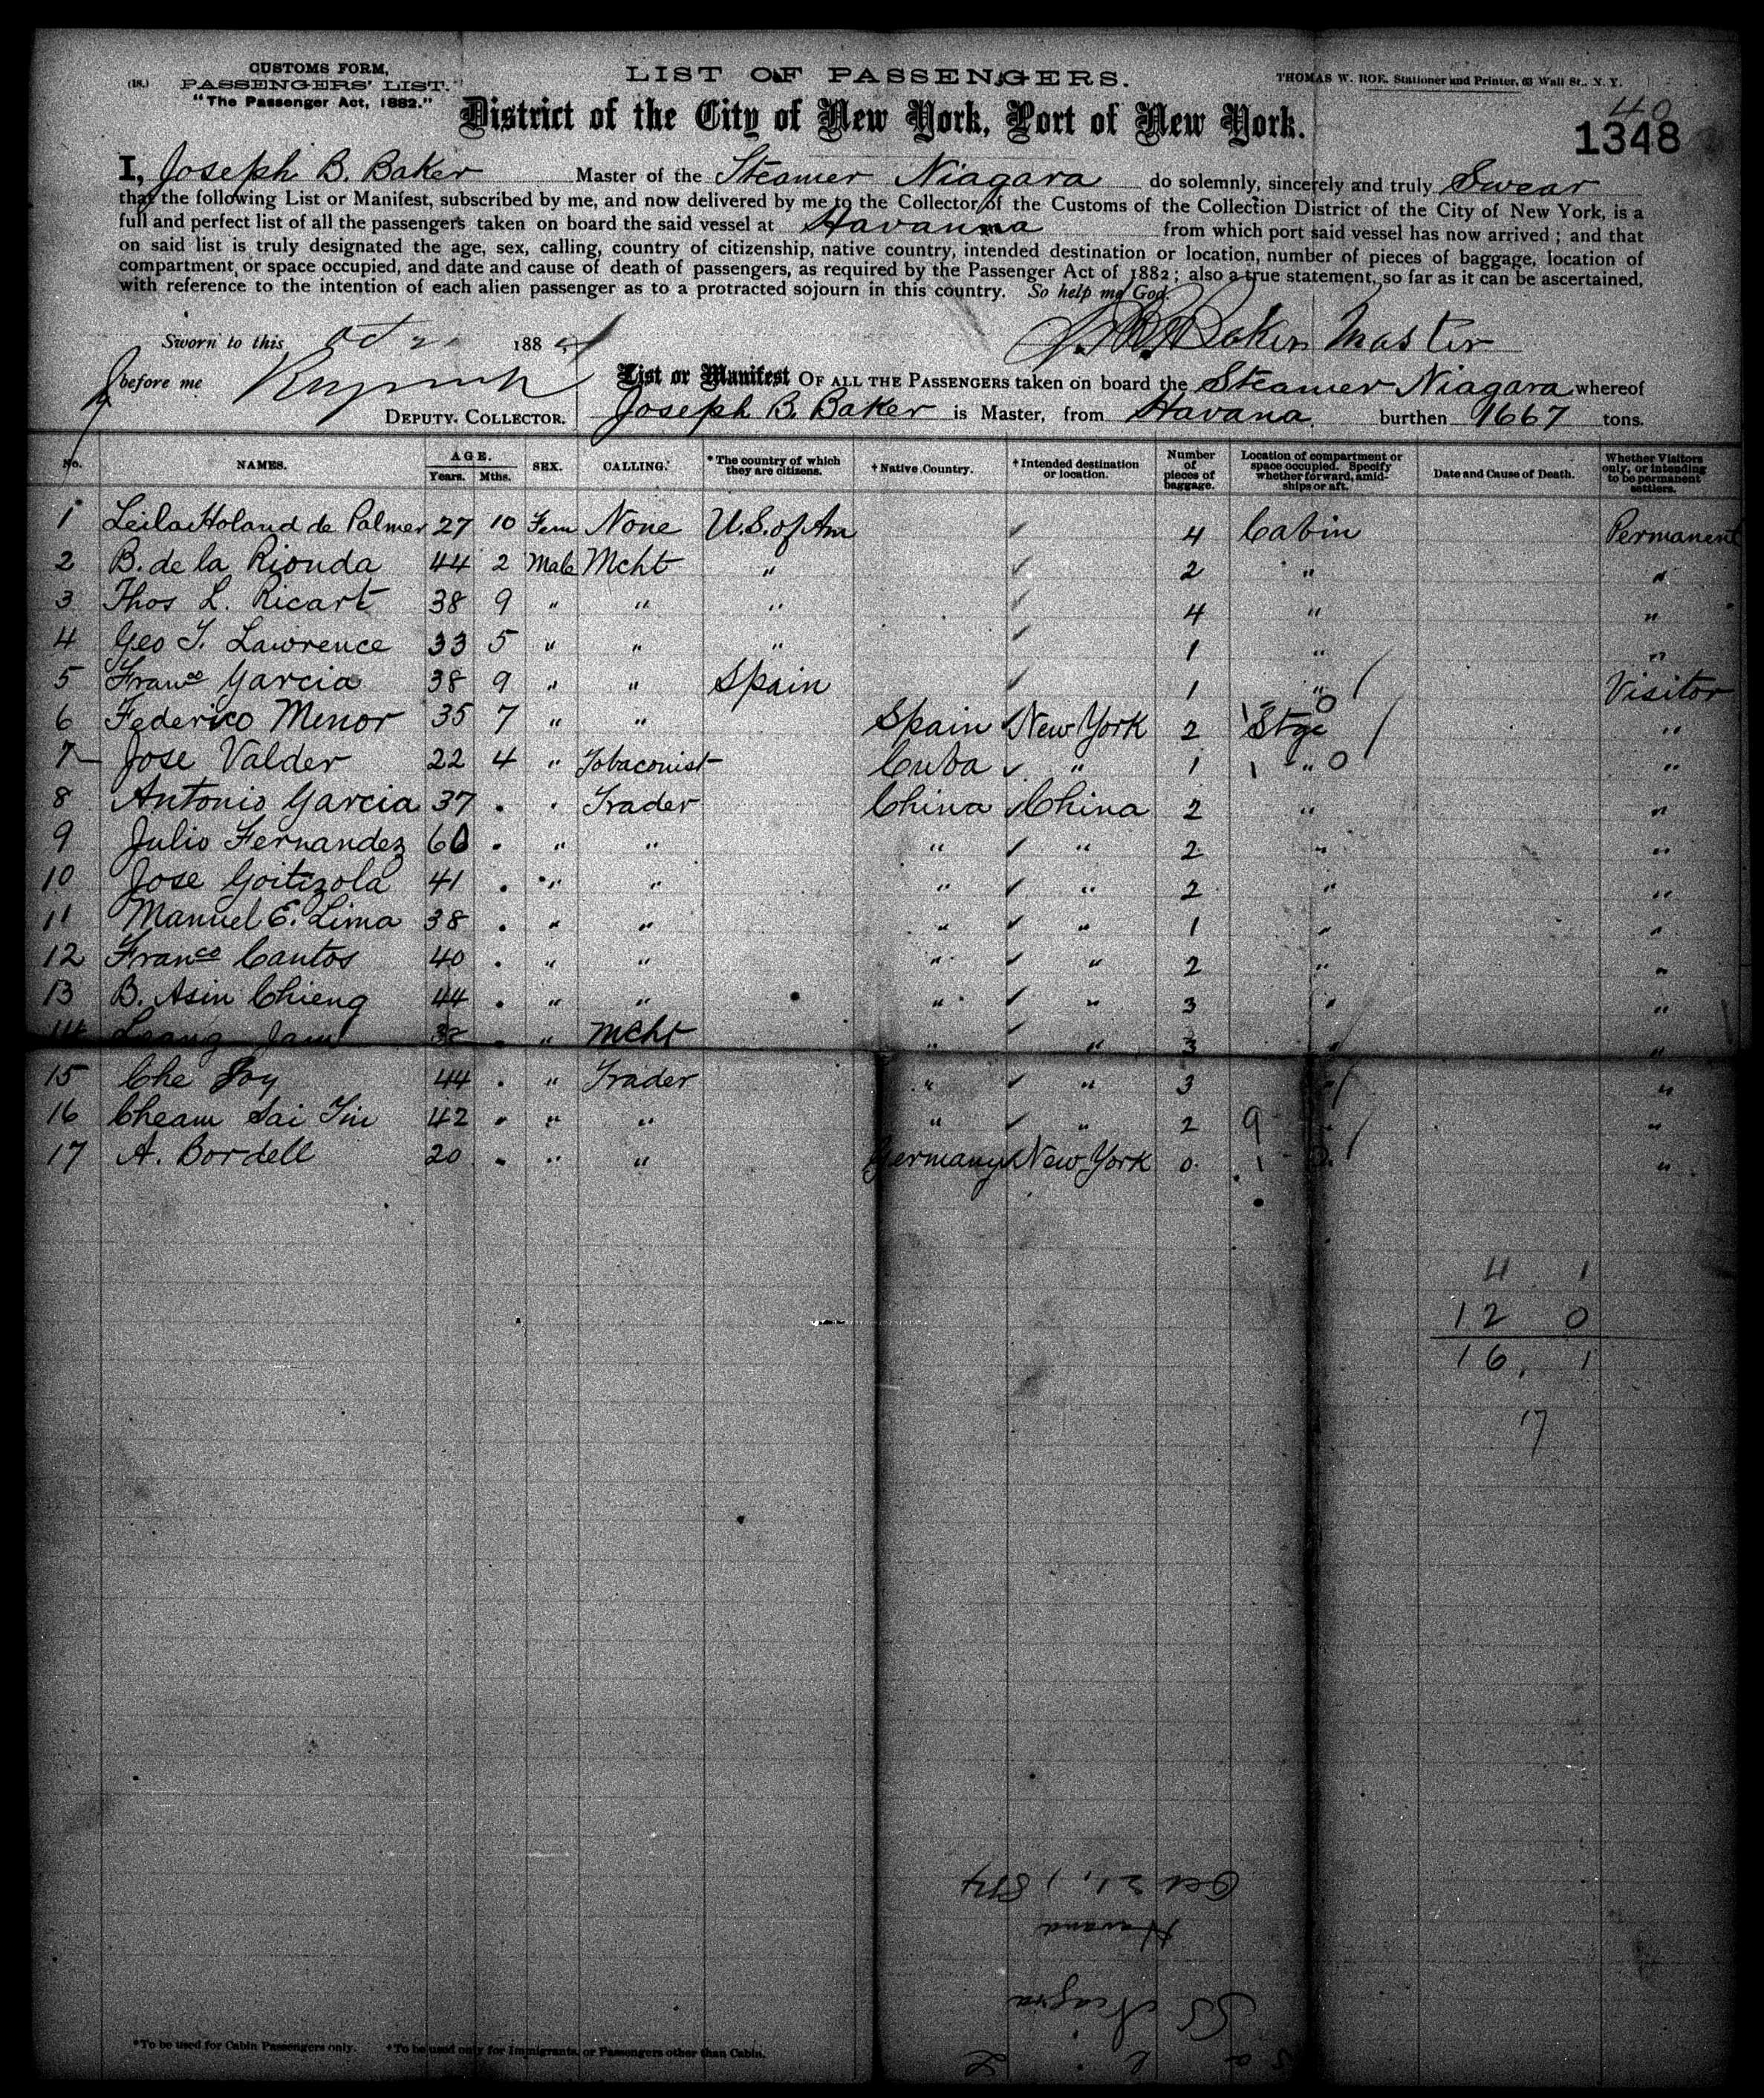 CUSTOMS FORM,
(18.) PASSENGERS' LIST.
"The Passenger Act, 1882."
LIST OF PASSENGERS.
THOMAS W. ROE, Stationer and Printer, 63 Wall St., N. Y.
District of the City of New York, Port of New York.
40
1348
I, Joseph B. Baker Master of the Steamer Niagara do solemnly, sincerely and truly Swear
that the following List or Manifest, subscribed by me, and now delivered by me to the Collector of the Customs of the Collection District of the City of New York, is a
full and perfect list of all the passengers taken on board the said vessel at Havanna from which port said vessel has now arrived; and that
on said list is truly designated the age, sex, calling, country of citizenship, native country, intended destination or location, number of pieces of baggage, location of
compartment or space occupied, and date and cause of death of passengers, as required by the Passenger Act of 1882; also a true statement, so far as it can be ascertained,
with reference to the intention of each alien passenger as to a protracted sojourn in this country. So help me God.
Sworn to this Oct 188
J. B. Baker Master
before me
DEPUTY COLLECTOR.
List or Manifest OF ALL THE PASSENGERS taken on board the Steamer Niagara whereof
Joseph B. Baker is Master, from Havana burthen 1667 tons.
No. NAMES. AGE. Years. Mths. SEX. CALLING. *The country of which they are citizens. †Native Country. †Intended destination or location. Number of pieces of baggage. Location of compartment or space occupied. Specify whether forward, amidships or aft. Date and Cause of Death. Whether Visitors only, or intending to be permanent settlers.
1 Leila Holand de Palmer 27 10 Fem None U.S. of Am ✓ 4 Cabin Permanent
2 B. de la Rionda 44 2 Male Mcht " ✓ 2 " "
3 Thos L. Ricart 38 9 " " " ✓ 4 " "
4 Geo T. Lawrence 33 5 " " " ✓ 1 " "
5 Franco Garcia 38 9 " " Spain ✓ 1 " / Visitor
6 Federico Menor 35 7 " " Spain ✓ New York 2 1 Stge 0 / "
7 Jose Valder 22 4 " Tobaconist Cuba ✓ " 1 1 " 0 "
8 Antonio Garcia 37 . . Trader China ✓ China 2 " "
9 Julio Fernandez 60 . " " " ✓ " 2 " "
10 Jose Goitizola 41 . " " " ✓ " 2 " "
11 Manuel E. Lima 38 . " " " ✓ " 1 " "
12 Franco Cantos 40 . " " " ✓ " 2 " "
13 B. Asin Chieng 44 . " " " ✓ " 3 " "
14 Leang Jam 38 . " Mcht " ✓ " 3 " "
15 Che Joy 44 . " Trader " ✓ " 3 " / "
16 Cheam Sai Tin 42 . " " " ✓ " 2 9 "
17 A. Bordell 20 . " " Germany ✓ New York 0 1 / "
4 1
12 0
16, 1
17
Oct 21, 1884
Havana
SS Niagra
*To be used for Cabin Passengers only. †To be used only for Immigrants, or Passengers other than Cabin.